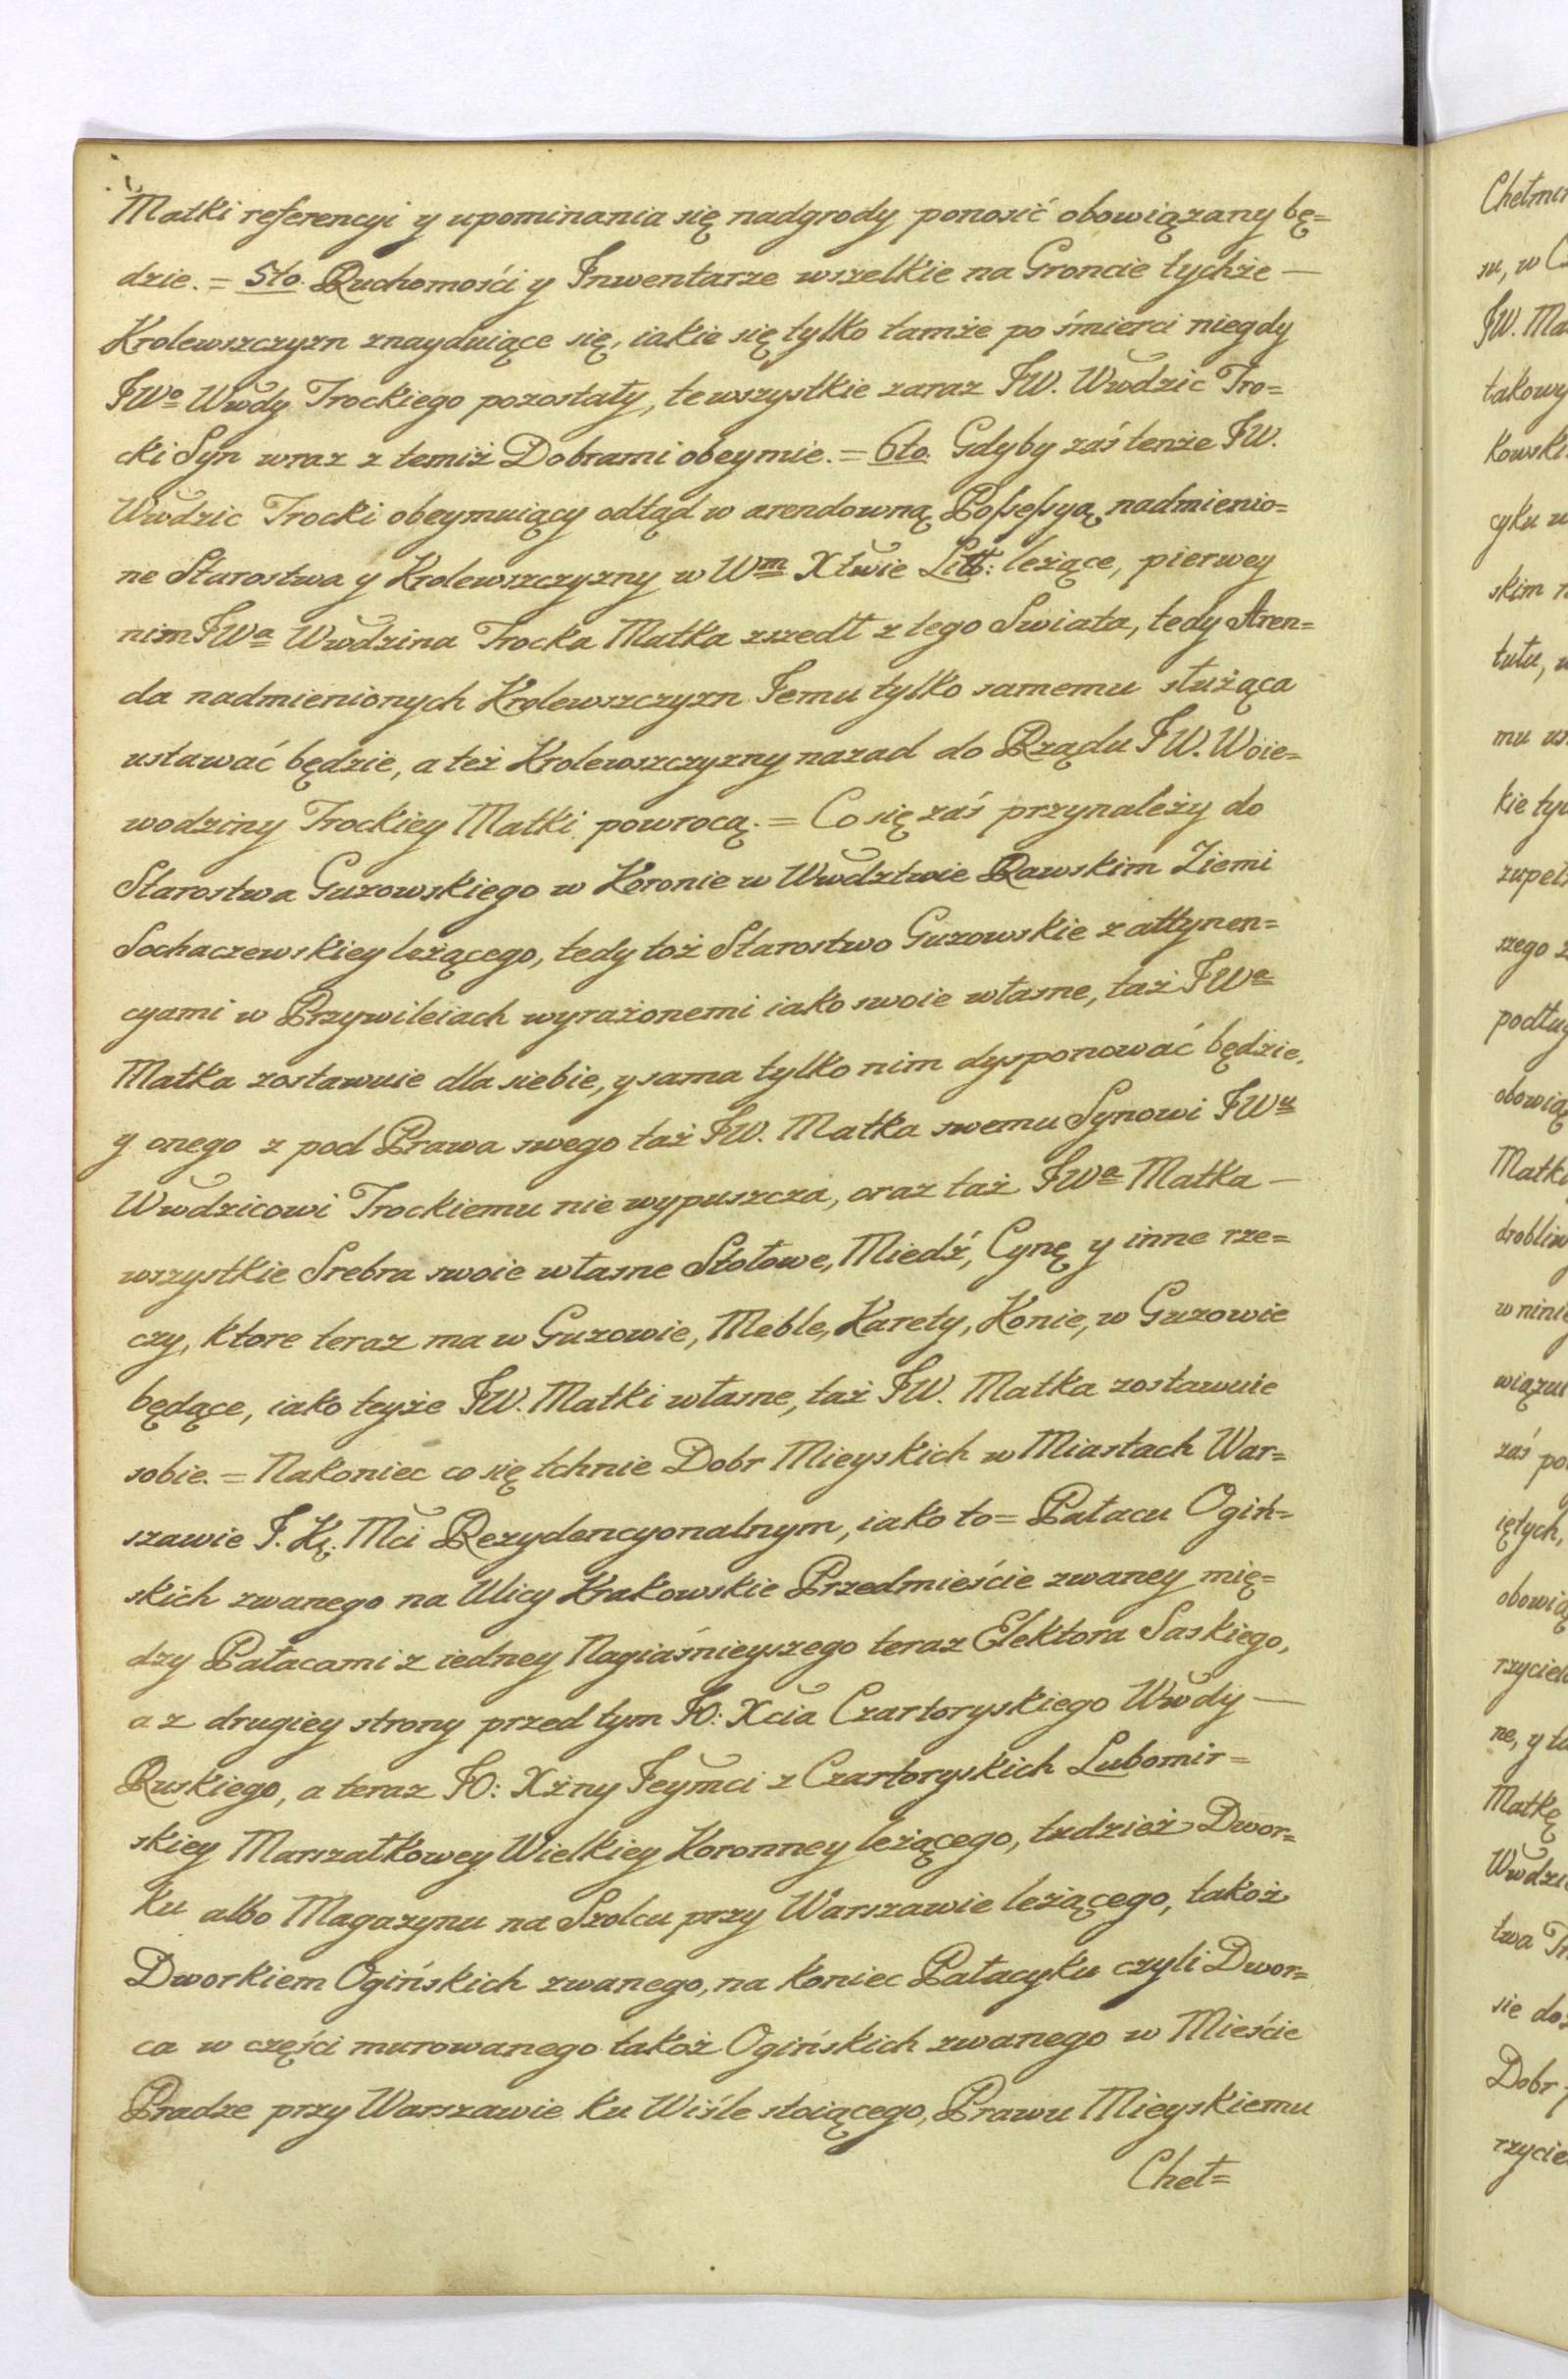 Matki referencyi y upominania się nadgrody ponosić obowiązany bę=
dzie. = 5to. Ruchomości y Inwentarze wszelkie na Groncie tychże —
Krolewszczyzn znayduiące się, iakie się tylko tamże po śmierci niegdy
JWo Wwdy Trockiego pozostały, te wszystkie zaraz JW. Wwdzic Tro=
cki Syn wraz z temiż Dobrami obeymie. = 6to. Gdyby zaś tenże JW.
Wwdzic Trocki obeymuiący odtąd w arendowną Possessyą nadmienio=
ne Starostwa y Krolewszczyzny w Wm Xtwie Litt: leżące, pierwey
nim JWa Wwdzina Trocka Matka zszedł z tego Swiata, tedy Aren=
da nadmienionych Krolewszczyzn Jemu tylko samemu służąca
ustawać będzie, a też Krolewszczyzny nazad do Rządu JW. Woie=
wodziny Trockiey Matki powrocą. = Co się zaś przynależy do
Starostwa Guzowskiego w Koronie w Wwdztwie Rawskim Ziemi
Sochaczewskiey leżącego, tedy toż Starostwo Guzowskie z attynen=
cyami w Przywileiach wyrażonemi iako swoie własne, taż JWa
Matka zostawuie dla siebie, y sama tylko nim dysponować będzie,
y onego z pod Prawa swego taż JW. Matka swemu Synowi JWu
Wwdzicowi Trockiemu nie wypuszcza, oraz taż JWa Matka —
wszystkie Srebra swoie własne Stołowe, Miedź, Cynę y inne rze=
czy, ktore teraz ma w Guzowie, Meble, Karety, Konie, w Guzowie
będące, iako teyże JW. Matki własne, taż JW. Matka zostawuie
sobie. = Nakoniec co się tchnie Dobr Mieyskich w Miastach War=
szawie J. K. Mci Rezydencyonalnym, iako to = Pałacu Ogiń=
skich zwanego na Ulicy Krakowskie Przedmieście zwaney mię=
dzy Pałacami z iedney Nayiaśnieyszego teraz Elektora Saskiego,
a z drugiey strony przed tym JO: Xcia Czartoryskiego Wwdy —
Ruskiego, a teraz JO: Xżny Jeymci z Czartoryskich Lubomir=
skiey Marszałkowey Wielkiey Koronney leżącego, tudzież Dwor=
ku albo Magazynu na Szolcu przy Warszawie leżącego, takoż
Dworkiem Ogińskich zwanego, na koniec Pałacyku czyli Dwor=
ca w części murowanego takoż Ogińskich zwanego w Mieście
Pradze przy Warszawie ku Wiśle stoiącego, Prawu Mieyskiemu
Cheł=